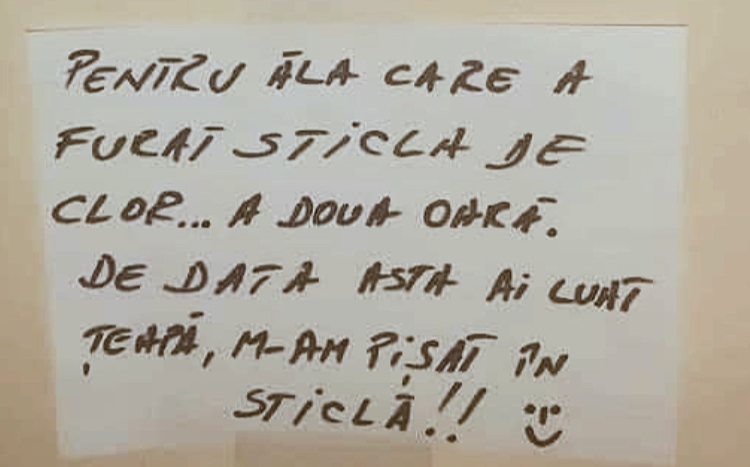 PENTRU ĂLA CARE A
FURAT STICLA DE
CLOR... A DOUA OARĂ.
DE DATA ASTA AI LUAT
ȚEAPĂ, M-AM PIȘAT ÎN
STICLĂ!!